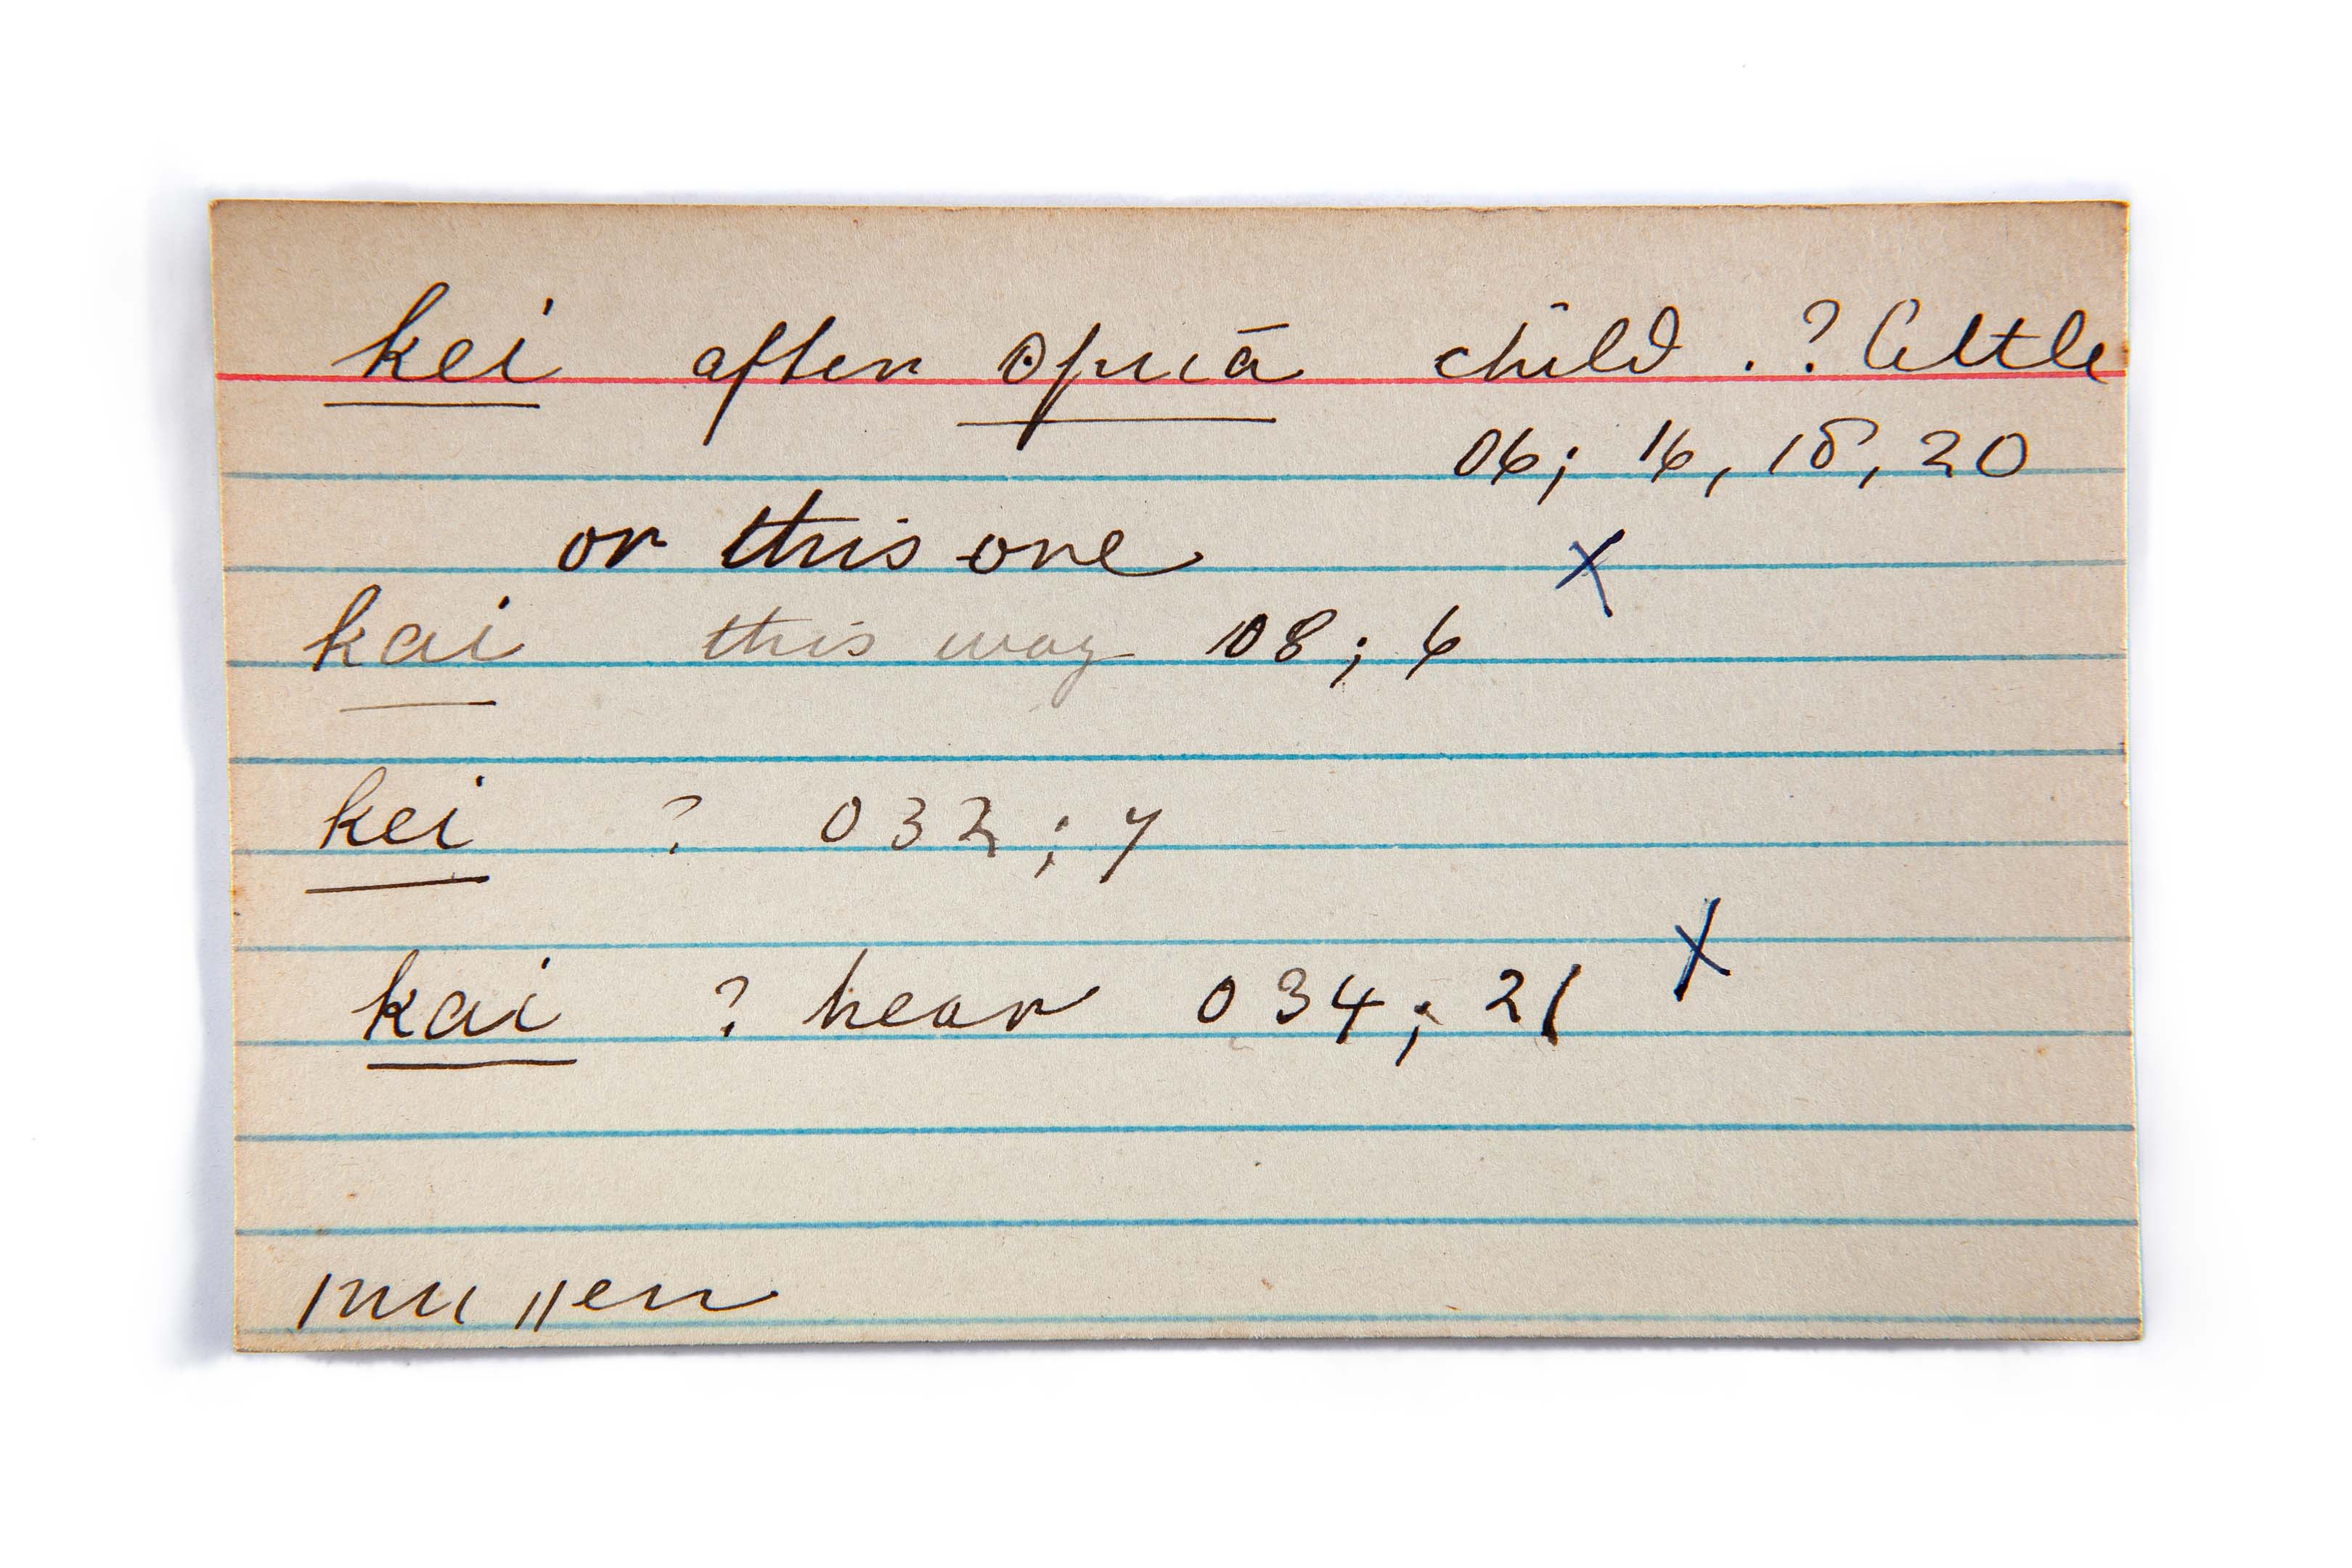 kei after opuā child . ? little
06; 16, 18, 20
or this one X
kai this way 08; 6
kei ? 032; 7
kai ? hear 034; 21 X